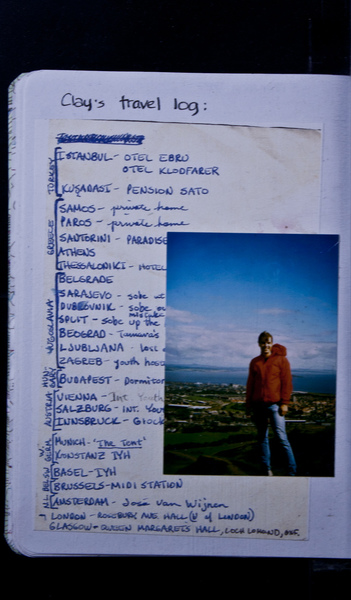 Clay's travel log:
TURKEY
ISTANBUL - OTEL EBRU
OTEL KLODFARER
KUŞADASI - PENSION SATO
GREECE
SAMOS - private home
PAROS - private home
SANTORINI - PARADISE
ATHENS
THESSALONIKI - HOTEL
YUGOSLAVIA
BELGRADE
SARAJEVO - sobe
DUBROVNIK - sobe
SPLIT - sobe up the
BEOGRAD -
LJUBLJANA -
ZAGREB - youth hos
HUN-
GARY
BUDAPEST - Dormitor
AUSTRIA
VIENNA - Int. Youth
SALZBURG - INT. YOU
INNSBRUCK - GLOCK
MUNICH - "The Tent"
KONSTANZ IYH
BASEL - IYH
BRUSSELS - MIDI STATION
AMSTERDAM - José van Wijnen
LONDON - ROSEBURY AVE HALL (U of LONDON)
GLASGOW - QUEEN MARGARETS HALL, LOCH LOMOND,